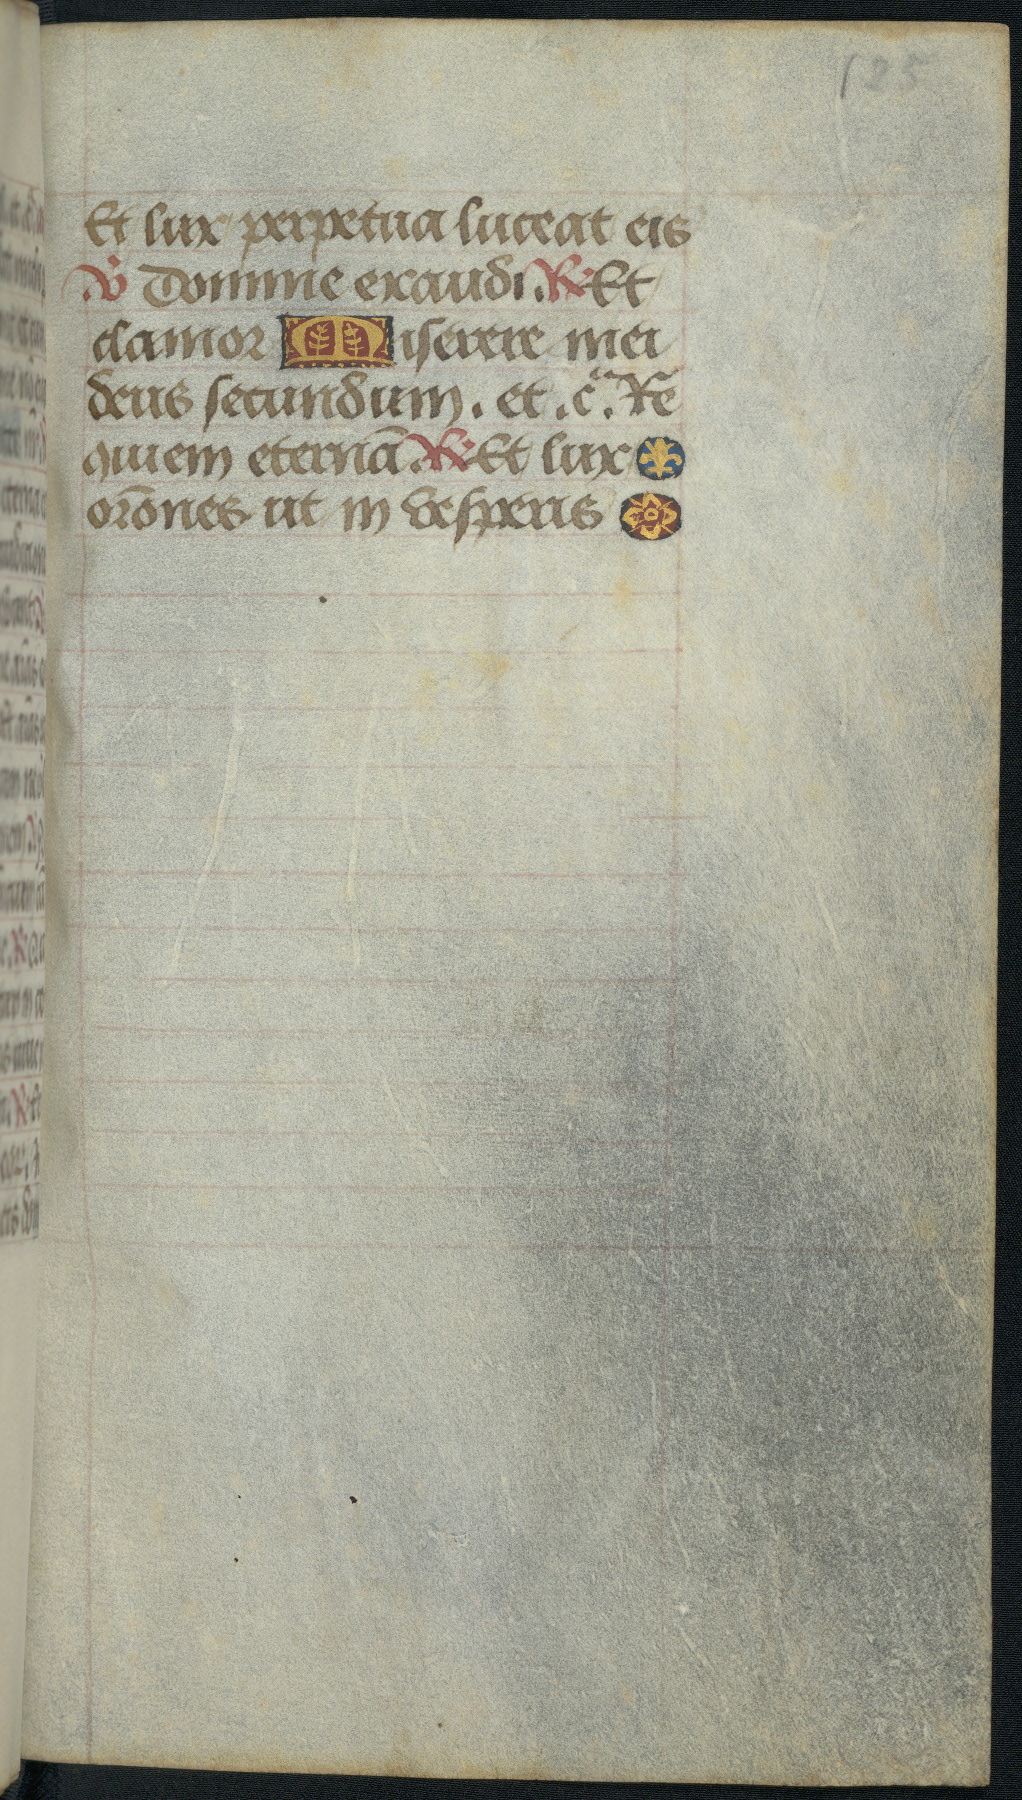 125
Et lux perpetua luceat eis
℣ Domine exaudi. ℟ Et
clamor Miserere mei
deus secundum. et .c̃. Re
quiem eternã. ℟ Et lux
orõnes ut in vesperis